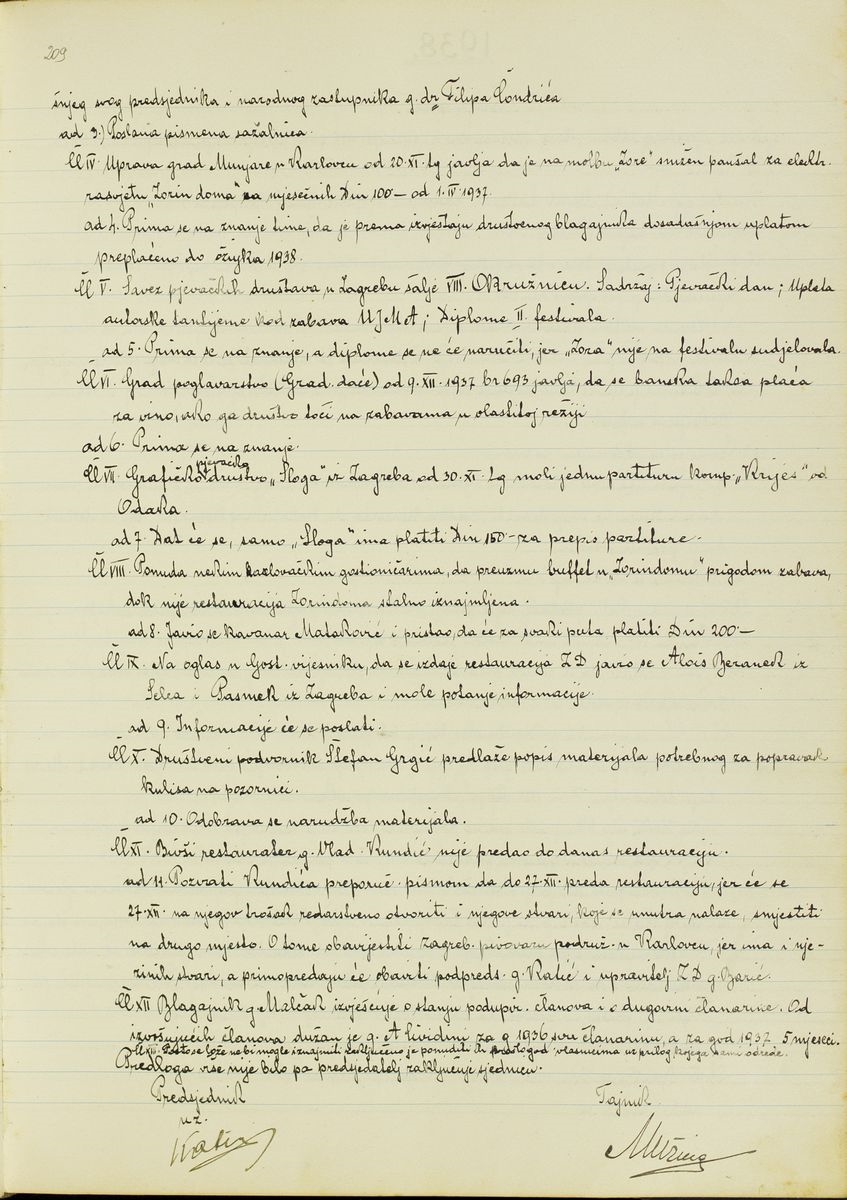 209
šnjeg svog predsjednika i narodnog zastupnika g. dr Filipa Čondrića
ad 3.) Poslana pismena sažalnica.
Čl IV. Uprava grad Munjare u Karlovcu od 20.XI. tg javlja da je na molbu „Zore" snižen paušal za elektr.
rasvjetu „Zorin doma" na mjesečnih Din 100— od 1.IV.1937.
ad 4. Prima se na znanje time, da je prema izvještaju društvenog blagajnika dosadašnjom uplatom
preplaćeno do ožujka 1938.
Čl V. Savez pjevačkih društava u Zagrebu šalje VIII. Okružnicu. Sadržaj: Pjevački dan; Uplata
autorske tantijeme kod zabava UJMA; Diplome II. festivala.
ad 5. Prima se na znanje, a diplome se ne će naručiti, jer „Zora" nije na festivalu sudjelovala.
Čl VI. Grad poglavarstvo (Grad. daće) od 9.XII.1937 br 693 javlja, da se banska taksa plaća
za vino, ako ga društvo toči na zabavama u vlastitoj režiji
ad 6. Prima se na znanje.
Čl VII. Grafičko pjevačko društvo „Sloga" iz Zagreba od 30.XI. tg moli jednu partituru komp. „Krijes" od
Odaka.
ad 7. Dat će se, samo „Sloga" ima platiti Din 150.— za prepis partiture.
Čl VIII. Ponuda nekim karlovačkim gostioničarima, da preuzmu buffet u „Zorindomu" prigodom zabava,
dok nije restauracija Zorindoma stalno iznajmljena.
ad 8. Javio se kavanar Mataković i pristao, da će za svaki puta platiti Din 200.—
Čl IX. Na oglas u Gost. vijesniku, da se izdaje restauracija ZD javio se Alois Beranek iz
Selca i Pasmek iz Zagreba i mole potanje informacije.
ad 9. Informacije će se poslati.
Čl X. Društveni podvornik Štefan Grgić predlaže popis materijala potrebnog za popravak
kulisa na pozornici.
ad 10. Odobrava se narudžba materijala.
Čl XI. Bivši restaurater g. Vlad Kundić nije predao do danas restauraciju.
ad 11. Pozvati Kundića preporuč. pismom da do 27.XII. preda restauraciju, jer će se
27.XII. na njegov trošak redarstveno otvoriti i njegove stvari, koje se unutra nalaze, smjestiti
na drugo mjesto. O tome obavijestiti Zagreb. pivovaru podruž. u Karlovcu, jer ima i nje-
zinih stvari, a primopredaju će obaviti podpreds. g. Katić i upravitelj ZD g. Barić.
Čl XII Blagajnik g. Malčak izvješćuje o stanju podupir. članova i o dugovni članarine. Od
izvršujućih članova dužan je g. A Lividini za g 1936 svu članarinu, a za god 1937. 5 mjeseci.
Čl XIII. Pošto se lože ne bi mogle iznajmiti zaključeno je ponuditi ih vlasnicima uz prilog kojega sami odrede.
Predloga više nije bilo pa predsjedatelj zaključuje sjednicu.
Predsjednik Tajnik
uz.
Katić